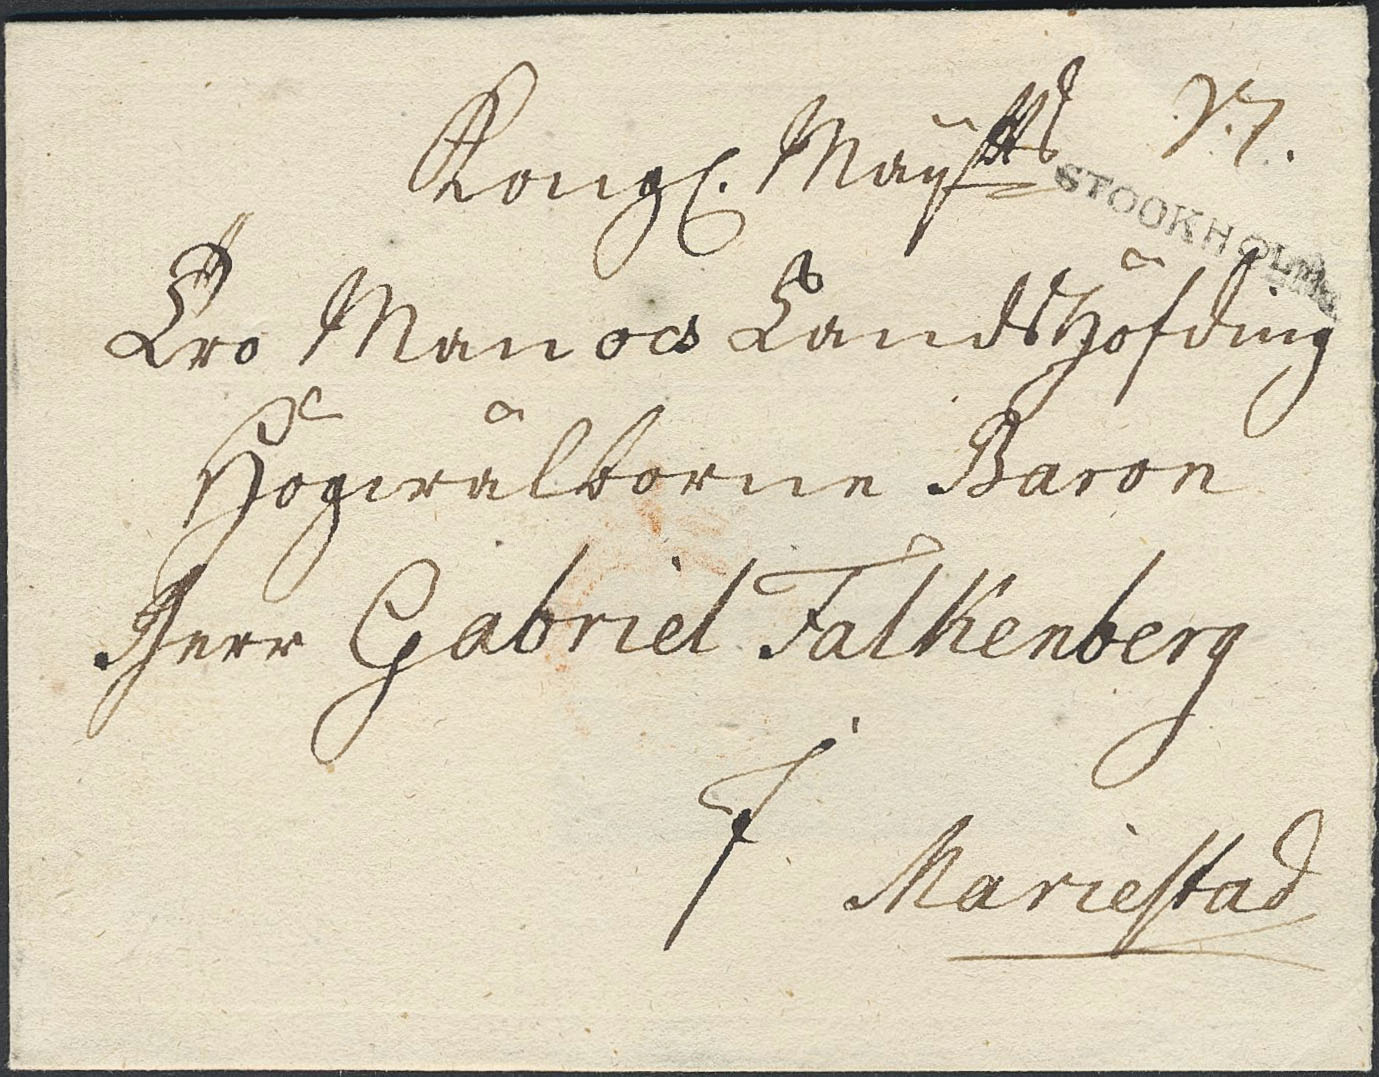 Kongl. Maÿtts
STOCKHOLM
Tro Man och Landshöfding
Högwälborne Baron
Herr Gabriel Falkenberg
i
Mariestad